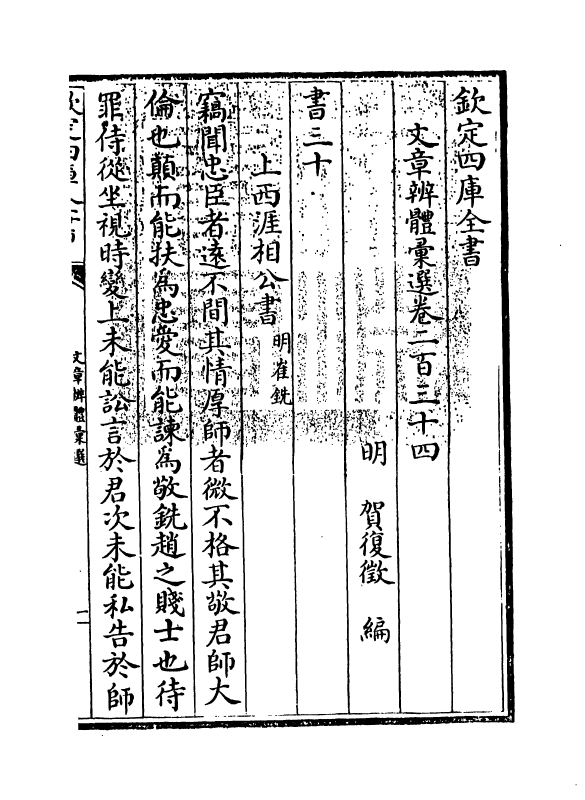 欽定四庫全書
文章辨體彙選卷二百三十四
明 賀復徵 編
書三十
上西涯相公書 明崔銑
竊聞忠臣者遠不間其情厚師者微不格其敬君師大
倫也顛而能扶為忠愛而能諫為敬銑趙之賤士也待
罪侍從坐視時變上未能訟言於君次未能私告於師
文章辨體彙選
一